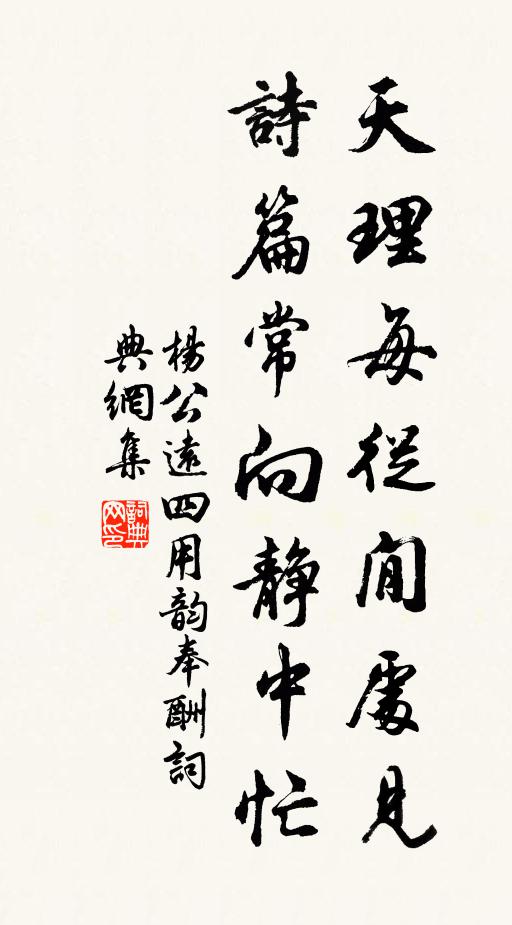 天理每從閒處見
詩篇常向靜中忙
楊公遠四用韵奉酬詞
典網集
詞典网印